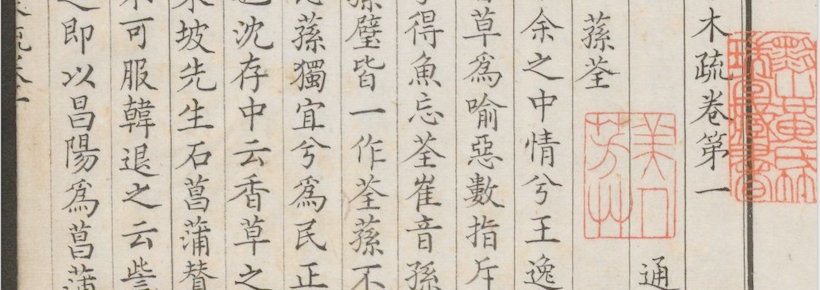 木疏卷第一
通
美人芳艸
蓀荃
余之中情兮王逸
草爲喻惡數指斥
得魚忘荃崔音孫
蓀璧皆一作荃蓀不
蓀獨宜兮爲民正
沈存中云香草之
東坡先生石菖蒲贊
不可服韓退之云訾
之即以昌陽爲菖蒲